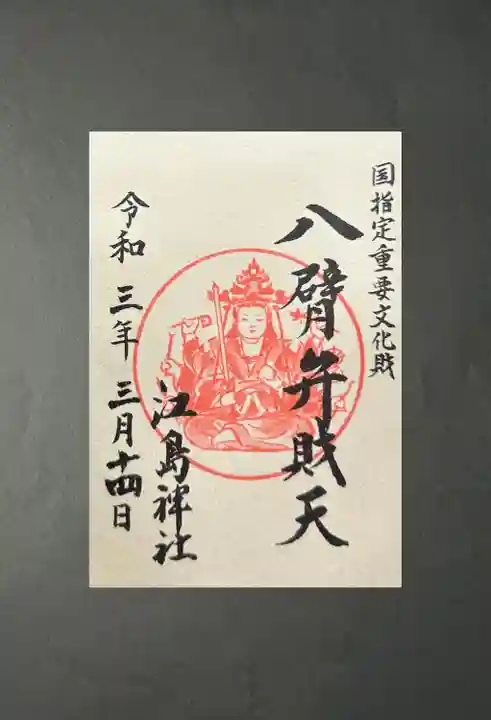 国指定重要文化財
八臂弁財天
江島神社
令和三年三月十四日